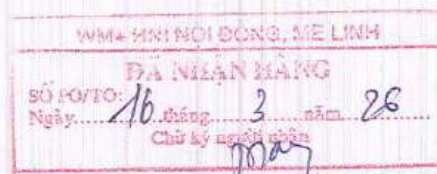 WM+ HNI NỘI ĐỒNG, MÊ LINH
ĐÃ NHẬN HÀNG
SỐ PO/TO:
Ngày 16 tháng 3 năm 26
Chữ ký người nhận